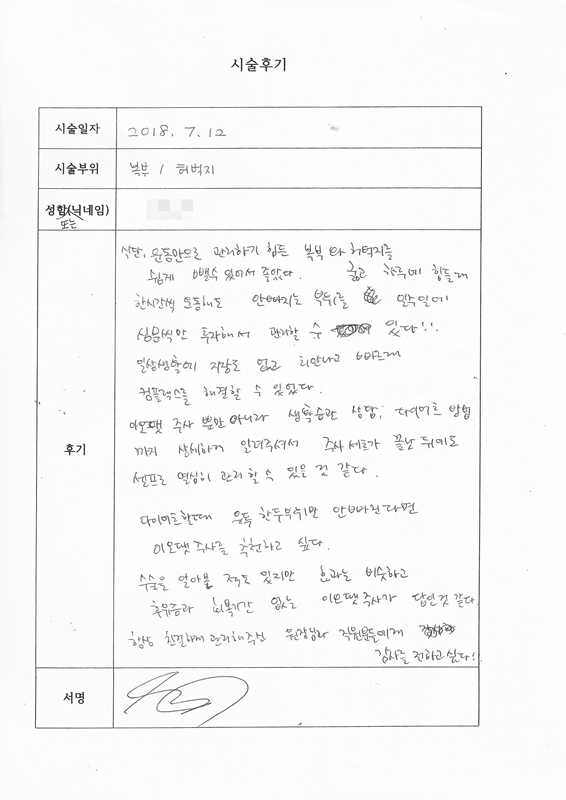 시술후기
시술일자 2018. 7. 12
시술부위 복부 / 허벅지
성함(닉네임)
또는
후기
식단, 운동만으로 관리하기 힘든 복부 와 허벅지를
쉽게 뺄수 있어서 좋았다. 굶고 하루에 힘들게
한시간씩 운동해도 안빠지는 부위를 일주일에
십분씩만 투자해서 관리할 수 있다!!
일상생활에 지장도 없고 티안나고 빠르게
컴플렉스를 해결할 수 있었다.
이오땟 주사 뿐만 아니라 생활습관 상담, 다이어트 방법
까지 상세하게 알려주셔서 주사 세트가 끝난 뒤에도
셀프로 열심히 관리 할 수 있을 것 같다.
다이어트할때 유독 한두부위만 안빠진다면
이오땟주사를 추천하고 싶다.
수술을 알아볼 적도 있지만 효과는 비슷하고
후유증과 회복기간 없는 이오땟주사가 답인것 같다.
항상 친절하게 관리해주신 원장님과 직원분들에게
감사를 전하고 싶다!
서명